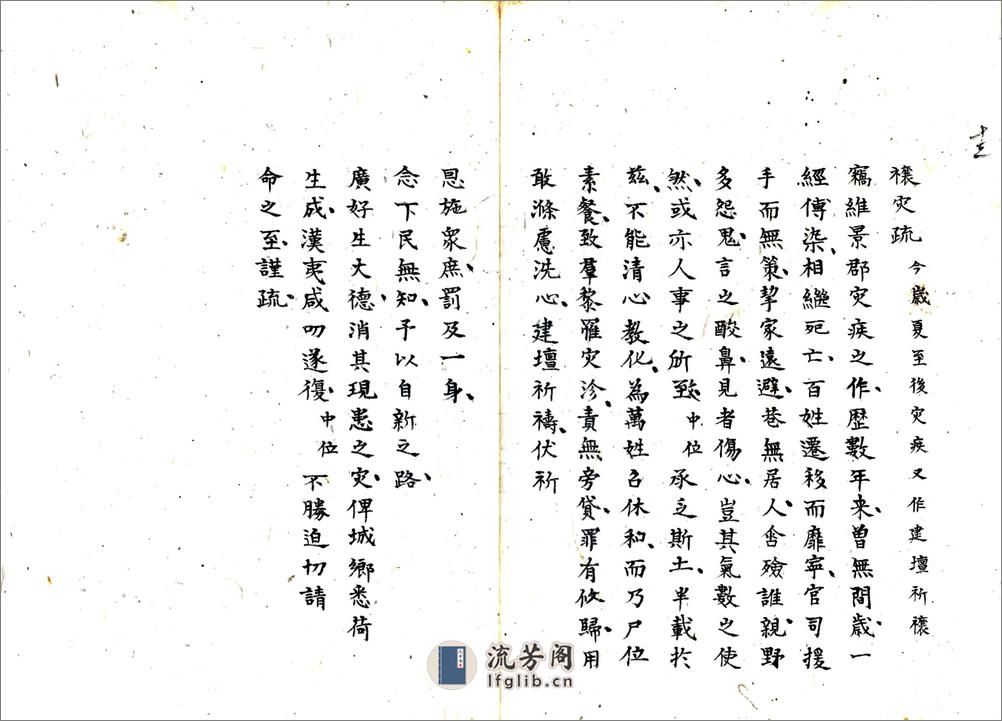 十三
禳灾疏 今歲夏至後灾疾又作建壇祈禳
竊維景郡灾疾之作、歷數年来、曾無間歲、一
經傳染、相繼死亡、百姓遷移而靡寧、官司援
手而無策、挈家遠避、巷無居人、舍殮誰親、野
多怨鬼、言之酸鼻、見者傷心、豈其氣數之使
然、或亦人事之所致、中位承乏斯土、半載於
茲、不能清心教化、為萬姓召休和、而乃尸位
素餐、致羣黎罹灾沴、責無旁貸、罪有攸歸、用
敢滌慮洗心、建壇祈禱、伏祈
恩施衆庶、罰及一身、
念下民無知、予以自新之路、
廣好生大德、消其現患之灾、俾城鄉悉荷
生成、漢夷咸叨遂復、中位不勝迫切請
命之至、謹疏、
流芳阁
lfglib.cn